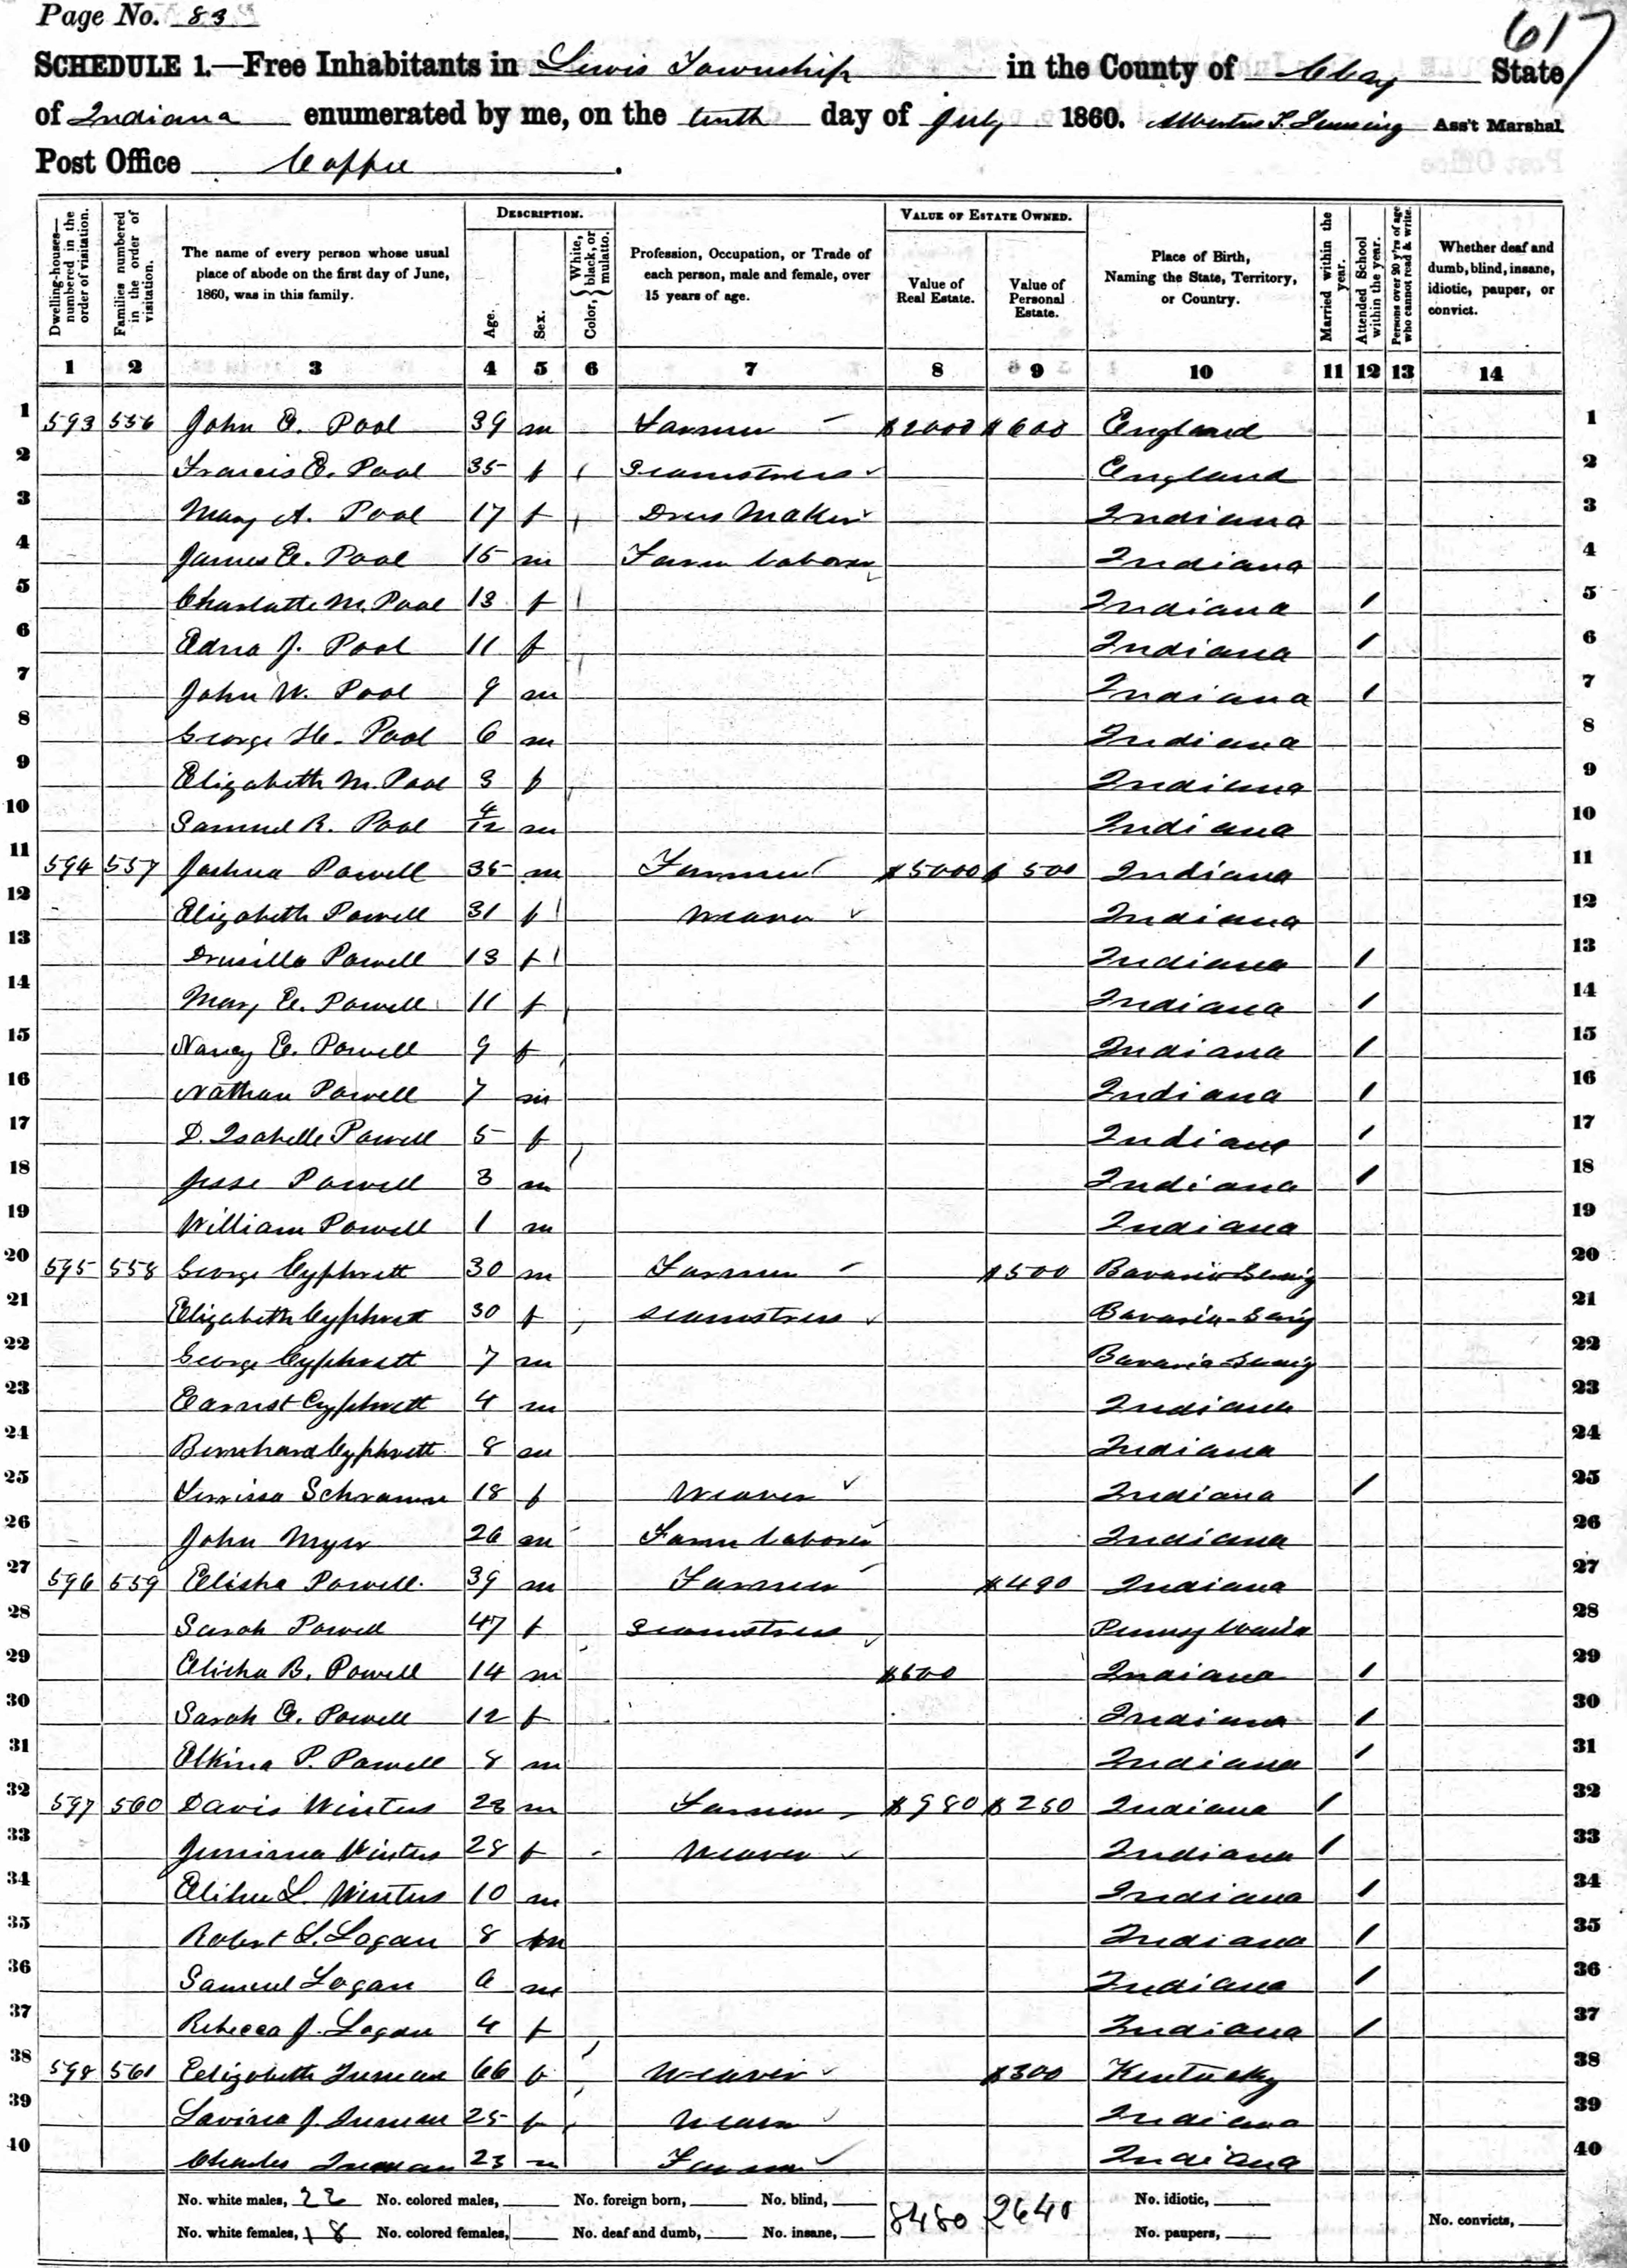 Page No. 83
617
SCHEDULE 1.—Free Inhabitants in Lewis Township in the County of Clay State
of Indiana enumerated by me, on the tenth day of July 1860. Ass't Marshal.
Post Office
Dwelling-houses—numbered in the order of visitation.
Families numbered in the order of visitation.
The name of every person whose usual place of abode on the first day of June, 1860, was in this family.
DESCRIPTION.
Age.
Sex.
Color, { White, black, or mulatto.
Profession, Occupation, or Trade of each person, male and female, over 15 years of age.
VALUE OF ESTATE OWNED.
Value of Real Estate.
Value of Personal Estate.
Place of Birth, Naming the State, Territory, or Country.
Married within the year.
Attended School within the year.
Persons over 20 y'rs of age who cannot read & write.
Whether deaf and dumb, blind, insane, idiotic, pauper, or convict.
1 2 3 4 5 6 7 8 9 10 11 12 13 14
1 593 556 John E. Pool 39 m Farmer $2000 $600 England 1
2 Francis E. Pool 35 f Seamstress England 2
3 Mary A. Pool 17 f Dress Maker Indiana 3
4 James E. Pool 15 m Farm Laborer Indiana 4
5 Charlotte M. Pool 13 f Indiana / 5
6 Edna J. Pool 11 f Indiana / 6
7 John W. Pool 9 m Indiana / 7
8 George H. Pool 6 m Indiana 8
9 Elizabeth M. Pool 3 f Indiana 9
10 Samuel R. Pool 4/12 m Indiana 10
11 594 557 Joshua Powell 35 m Farmer $5000 $500 Indiana 11
12 Elizabeth Powell 31 f Weaver Indiana 12
13 Drusilla Powell 13 f Indiana / 13
14 Mary E. Powell 11 f Indiana / 14
15 Nancy E. Powell 9 f Indiana / 15
16 Nathan Powell 7 m Indiana / 16
17 D. Isabelle Powell 5 f Indiana / 17
18 Jesse Powell 3 m Indiana / 18
19 William Powell 1 m Indiana 19
20 595 558 George Cyphrett 30 m Farmer $500 Bavaria 20
21 Elizabeth Cyphrett 30 f Seamstress Bavaria 21
22 George Cyphrett 7 m Bavaria 22
23 Earnst Cyphrett 4 m Indiana 23
24 Bernhard Cyphrett 8 m Indiana 24
25 Schramm 18 f Weaver Indiana / 25
26 John Myer 26 m Farm Laborer Indiana 26
27 596 559 Elisha Powell 39 m Farmer $490 Indiana 27
28 Sarah Powell 47 f Seamstress Pennsylvania 28
29 Elisha B. Powell 14 m $600 Indiana / 29
30 Sarah E. Powell 12 f Indiana / 30
31 Elkina P. Powell 8 m Indiana / 31
32 597 560 Davis Winters 23 m Farmer $980 $250 Indiana / 32
33 Winters 28 f Weaver Indiana / 33
34 Elihu L. Winters 10 m Indiana / 34
35 Robert S. Logan 8 m Indiana / 35
36 Samuel Logan 6 m Indiana / 36
37 Rebecca J. Logan 4 f Indiana / 37
38 598 561 Elizabeth Inman 66 f Weaver $300 Kentucky 38
39 Lavina J. Inman 25 f Weaver Indiana 39
40 Charles Inman 23 m Farmer Indiana 40
No. white males, 22 No. colored males, No. foreign born, No. blind, 8480 2640 No. idiotic,
No. white females, 18 No. colored females, No. deaf and dumb, No. insane, No. paupers, No. convicts,